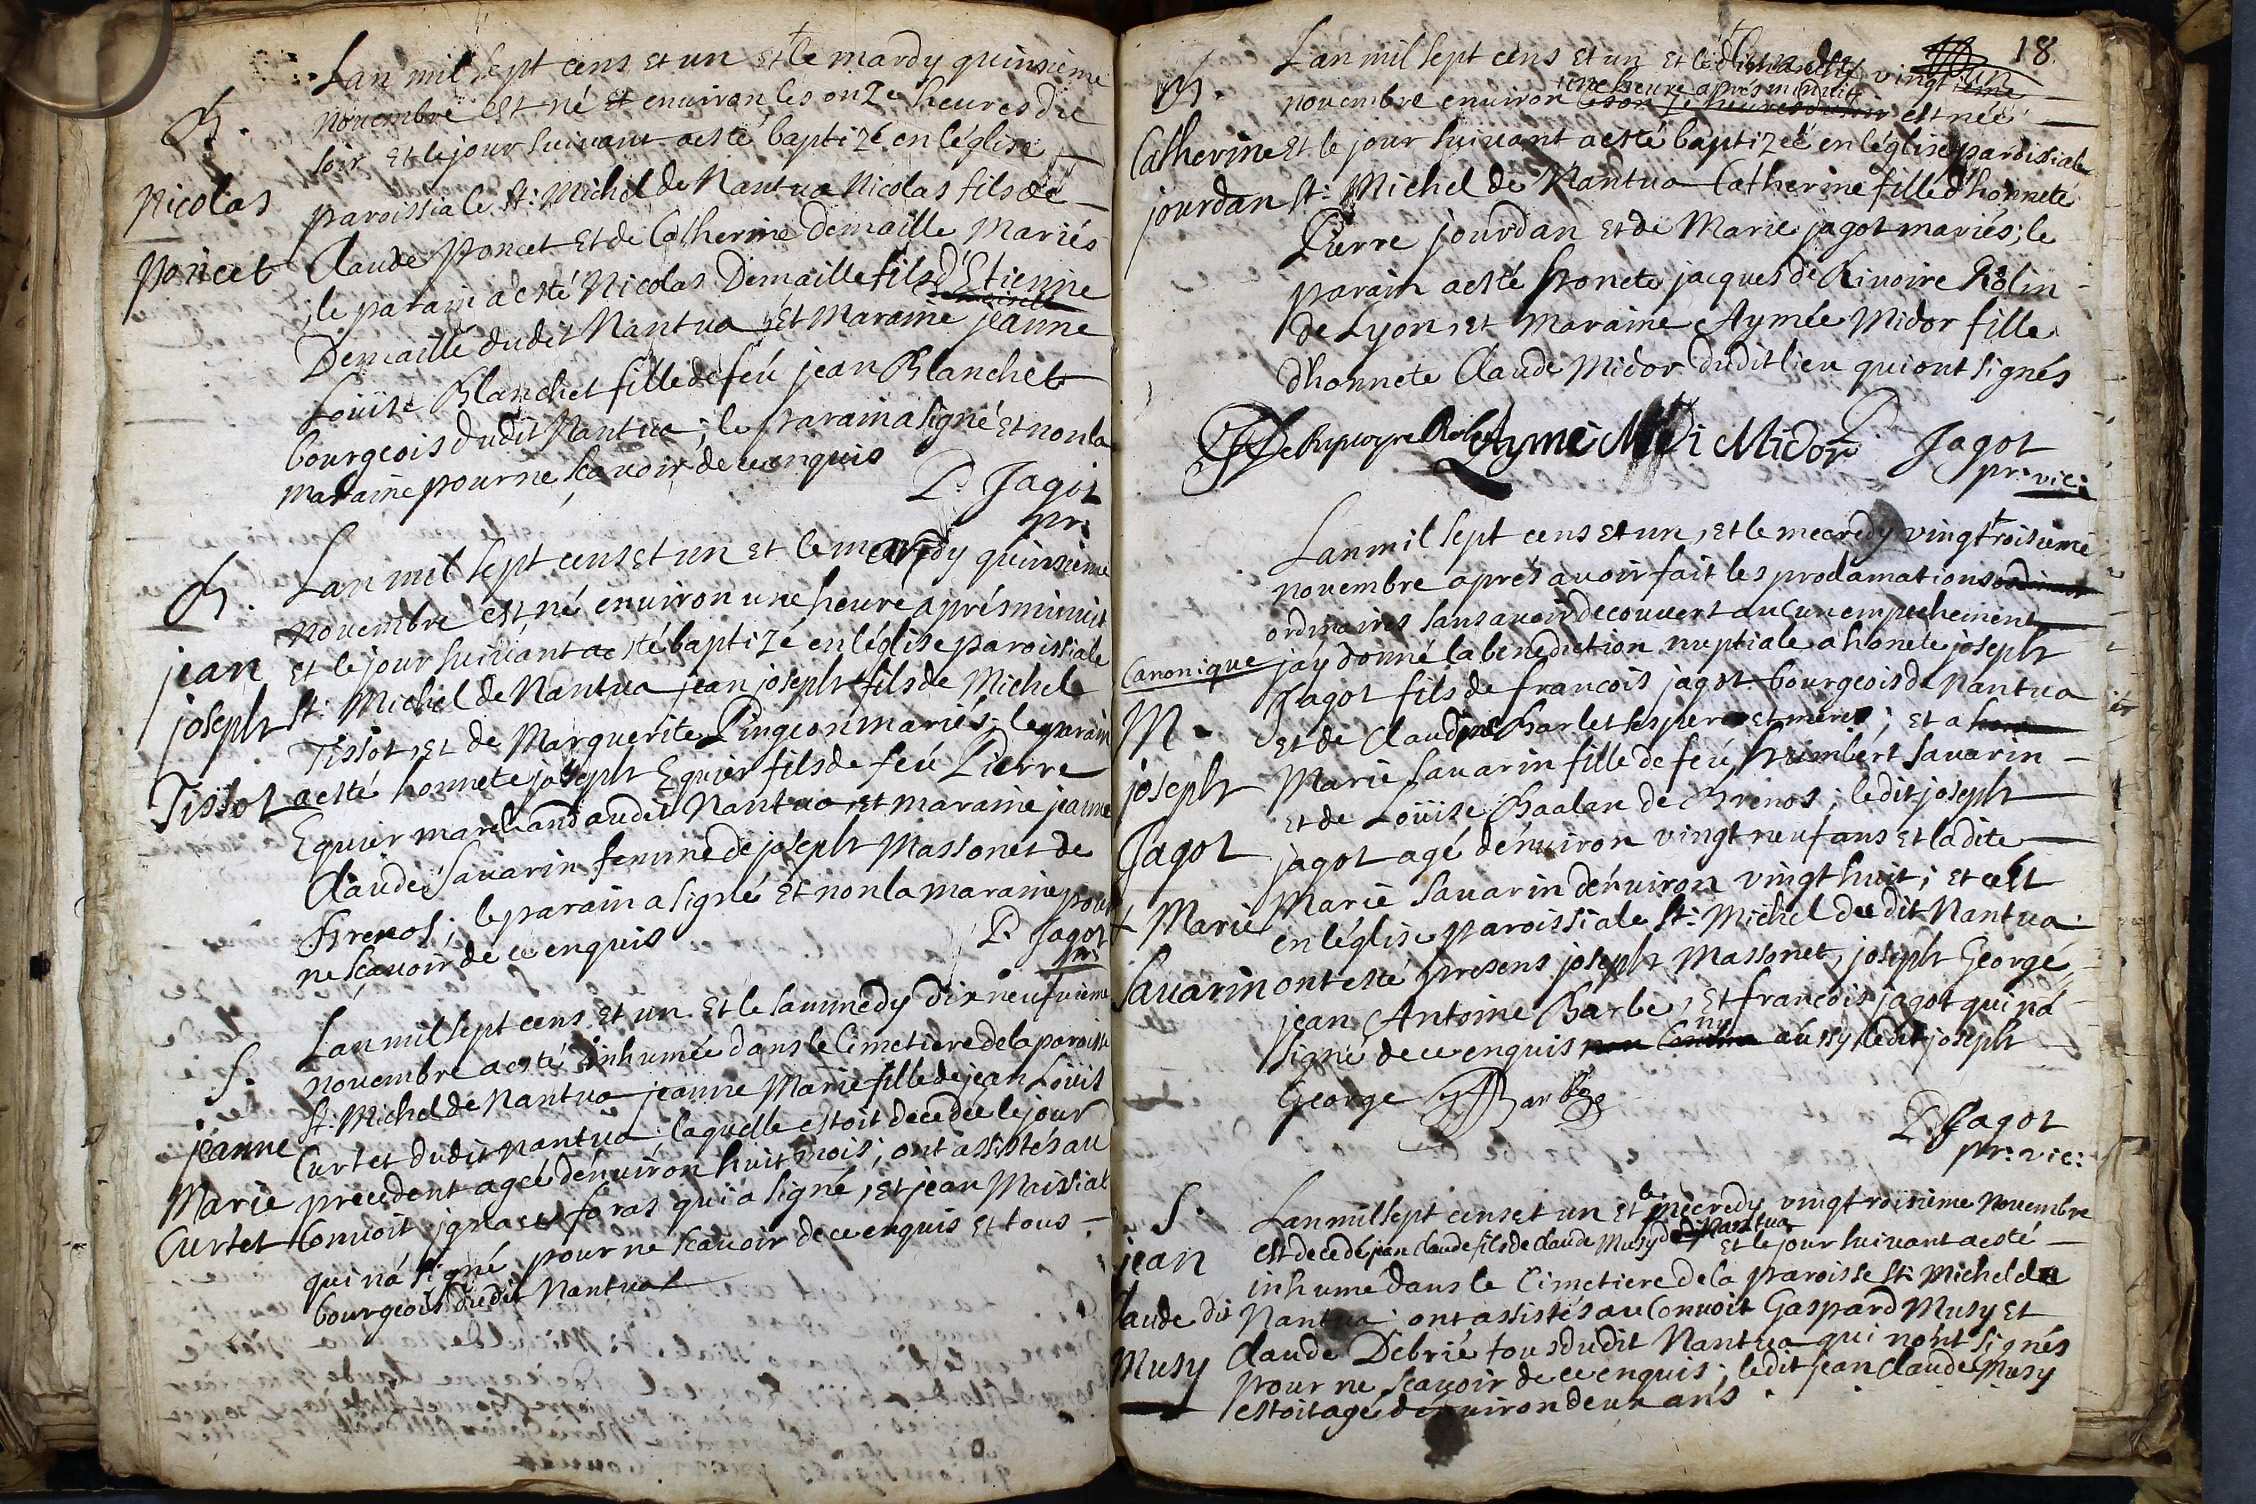 Lan mil sept cens et un et le mardy quinsieme
B. novembre est né et environ les onze heures du
soir et le jour suivant a esté baptizé en léglise
Nicolas paroissiale St: Michel de Nantua Nicolas fils de
Poncet Claude Poncet et de Catherine Demaille Mariés
le parain a esté Nicolas Demaille fils d'Etienne
Demaille dudit Nantua et Maraine jeanne
Loüise Blanchet fille de feü jean Blanchet
bourgeois dudit Nantua; le parain a signé et non la
maraine pour ne sçavoir de ce enquis
P. Jagot
pr:
Lan mil sept cens et un et le mardy quinsieme
B. novembre est né environ une heure aprés minuit
jean et le jour suivant a esté baptizé en léglise paroissiale
joseph St: Michel de Nantua jean joseph fils de Michel
Tissot, et de Marguerite Pingeon mariés; le parain
Tissot a esté honnete joseph Equier fils de feü Pierre
Equier marchand audit Nantua et maraine jeanne
Claude Savarin femme de joseph Massonet de
Brenos; le parain a signé et non la maraine pour
ne sçavoir de ce enquis
P. Jagot
pr:
Lan mil sept cens et un et le sammedy dix neufvieme
S. novembre a esté inhumée dans le Cimetiere de la paroisse
St. Michel de Nantua jeanne Marie fille de jean Loüis
jeanne Curtet dudit nantua, laquelle estoit decedée le jour
Marie precedent agée dénviron huit mois; ont assistés au
Curtet Convoit ignace foras qui a signé, et jean Maissiat
qui n'a signé pour ne scavoir de ce enquis et tous
bourgeois dudit Nantua
18
Lan mil sept cens et un et le vingt un
B. novembre environ une heure aprés minuit est née
Catherine et le jour suivant a esté baptizée en léglise paroissiale
jourdan St: Michel de Nantua Catherine fille d'honneté
Pierre jourdan et de Marie jagot mariés; le
parain a esté honete jacques de Rivoire Robin
de Lyon, et maraine Aymée Midor fille
d'honnete Claude Midor dudit lieu qui ont signés
Aymé Midor P. Jagot
pr: vic:
Lan mil sept cens et un, et le mecredy vingt troisieme
novembre aprés avoir fait les proclamations
ordinaires sans avoir decouvert aucun empechement
Canonique jáy donné la benediction nuptiale a honete joseph
Jagot fils de francois jagot bourgeois de Nantua
M. et de Claudine Charlet ses pere et mere; et a
joseph Marie Savarin fille de feü humbert Savarin
et de Loüise Baalan de Brenos; ledit joseph
Jagot jagot agé dénviron vingt neuf ans et ladite
Marie Savarin dénviron vingt huit; et cést
+ Marie en léglise paroissiale St: Michel du dit Nantua
Savarin ont esté presens joseph Massonet, joseph George
jean Antoine Barbe, et francois jagot qui n'a
signé de ce enquis ny aussy ledit joseph
George Barbe
P. Jagot
pr: vic:
S. Lan mil sept cens et un et le mecredy vingt troisieme Novembre
jean est decedé jean Claude fils de Claude Musy dudit Nantua et le jour suivant a esté
inhumé dans le Cimetiere de la paroisse St: Michel de
Claude dit Nantua; ont assistés au Convoit Gaspard Musy et
Musy Claude Debrié tous dudit Nantua qui nónt signés
pour ne sçavoir de ce enquis; ledit jean Claude Musy
estoit agé dénviron deux ans